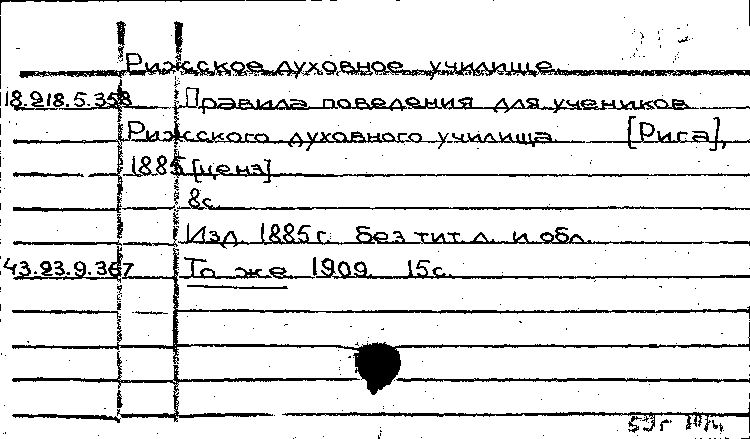 217
Рижское духовное училище
18.218.5.358 Правила поведения для учеников
Рижского духовного училища [Рига],
1885 [ценз]
8с.
Изд. 1885г. без тит л. и обл.
43.23.9.367 То же 1909. 15с.
59г